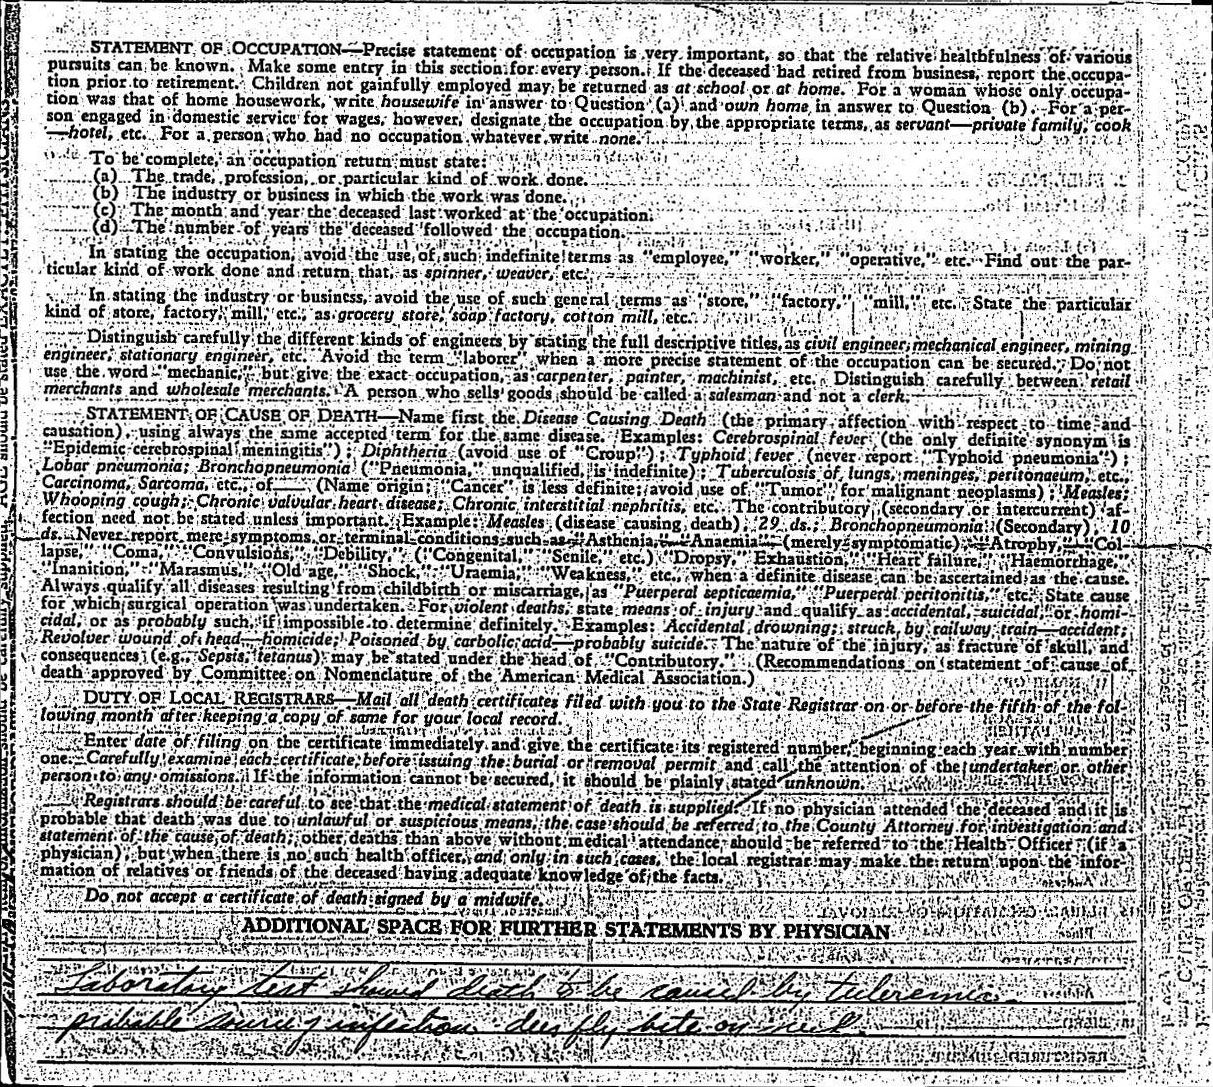 STATEMENT OF OCCUPATION—Precise statement of occupation is very important, so that the relative healthfulness of various
pursuits can be known. Make some entry in this section for every person. If the deceased had retired from business, report the occupa-
tion prior to retirement. Children not gainfully employed may be returned as at school or at home. For a woman whose only occupa-
tion was that of home housework, write housewife in answer to Question (a) and own home in answer to Question (b). For a per-
son engaged in domestic service for wages, however, designate the occupation by the appropriate terms, as servant—private family, cook
—hotel, etc. For a person who had no occupation whatever write none.
To be complete, an occupation return must state:
(a) The trade, profession, or particular kind of work done.
(b) The industry or business in which the work was done.
(c) The month and year the deceased last worked at the occupation.
(d) The number of years the deceased followed the occupation.
In stating the occupation, avoid the use of such indefinite terms as "employee," "worker," "operative," etc. Find out the par-
ticular kind of work done and return that, as spinner, weaver, etc.
In stating the industry or business, avoid the use of such general terms as "store," "factory," "mill," etc. State the particular
kind of store, factory, mill, etc., as grocery store, soap factory, cotton mill, etc.
Distinguish carefully the different kinds of engineers by stating the full descriptive titles, as civil engineer, mechanical engineer, mining
engineer, stationary engineer, etc. Avoid the term "laborer" when a more precise statement of the occupation can be secured. Do not
use the word "mechanic," but give the exact occupation, as carpenter, painter, machinist, etc. Distinguish carefully between retail
merchants and wholesale merchants. A person who sells goods should be called a salesman and not a clerk.
STATEMENT OF CAUSE OF DEATH—Name first the Disease Causing Death (the primary affection with respect to time and
causation), using always the same accepted term for the same disease. Examples: Cerebrospinal fever (the only definite synonym is
"Epidemic cerebrospinal meningitis"); Diphtheria (avoid use of "Croup"); Typhoid fever (never report "Typhoid pneumonia");
Lobar pneumonia; Bronchopneumonia ("Pneumonia," unqualified, is indefinite); Tuberculosis of lungs, meninges, peritonaeum, etc.,
Carcinoma, Sarcoma, etc., of (Name origin; "Cancer" is less definite; avoid use of "Tumor" for malignant neoplasms); Measles;
Whooping cough; Chronic valvular heart disease; Chronic interstitial nephritis, etc. The contributory (secondary or intercurrent) af-
fection need not be stated unless important. Example: Measles (disease causing death), 29 ds.; Bronchopneumonia (Secondary), 10
ds. Never report mere symptoms or terminal conditions such as "Asthenia," "Anaemia" (merely symptomatic), "Atrophy," "Col-
lapse," "Coma," "Convulsions," "Debility," ("Congenital," "Senile, etc.) "Dropsy," Exhaustion," "Heart failure," "Haemorrhage,"
"Inanition," "Marasmus," "Old age," "Shock," "Uraemia," "Weakness," etc., when a definite disease can be ascertained as the cause.
Always qualify all diseases resulting from childbirth or miscarriage, as "Puerperal septicaemia," "Puerperal peritonitis," etc. State cause
for which surgical operation was undertaken. For violent deaths, state means of injury and qualify as accidental, suicidal or homi-
cidal, or as probably such, if impossible to determine definitely. Examples: Accidental drowning; struck by railway train—accident;
Revolver wound of head—homicide; Poisoned by carbolic acid—probably suicide. The nature of the injury, as fracture of skull, and
consequences (e.g., Sepsis, tetanus) may be stated under the head of "Contributory." (Recommendations on statement of cause of
death approved by Committee on Nomenclature of the American Medical Association.)
DUTY OF LOCAL REGISTRARS—Mail all death certificates filed with you to the State Registrar on or before the fifth of the fol-
lowing month after keeping a copy of same for your local record.
Enter date of filing on the certificate immediately and give the certificate its registered number, beginning each year with number
one. Carefully examine each certificate before issuing the burial or removal permit and call the attention of the undertaker or other
person to any omissions. If the information cannot be secured, it should be plainly stated unknown.
Registrars should be careful to see that the medical statement of death is supplied. If no physician attended the deceased and it is
probable that death was due to unlawful or suspicious means, the case should be referred to the County Attorney for investigation and
statement of the cause of death; other deaths than above without medical attendance should be referred to the Health Officer (if a
physician), but when there is no such health officer, and only in such cases, the local registrar may make the return upon the infor-
mation of relatives or friends of the deceased having adequate knowledge of the facts.
Do not accept a certificate of death signed by a midwife.
ADDITIONAL SPACE FOR FURTHER STATEMENTS BY PHYSICIAN
Laboratory test showed death to be caused by tuleremia.
probable source of infection deer fly bite on neck.